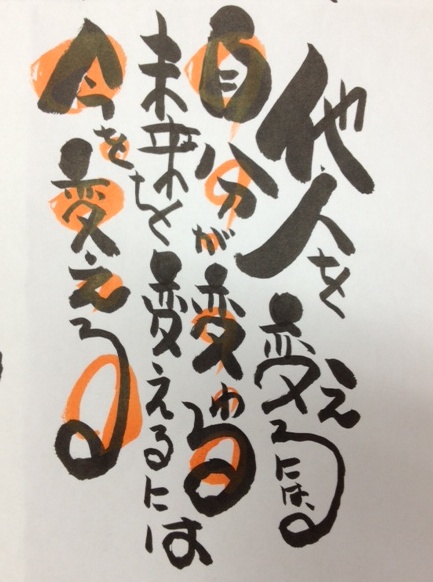 他人を変えるには、
自分が変わる
未来を変えるには
今を変える